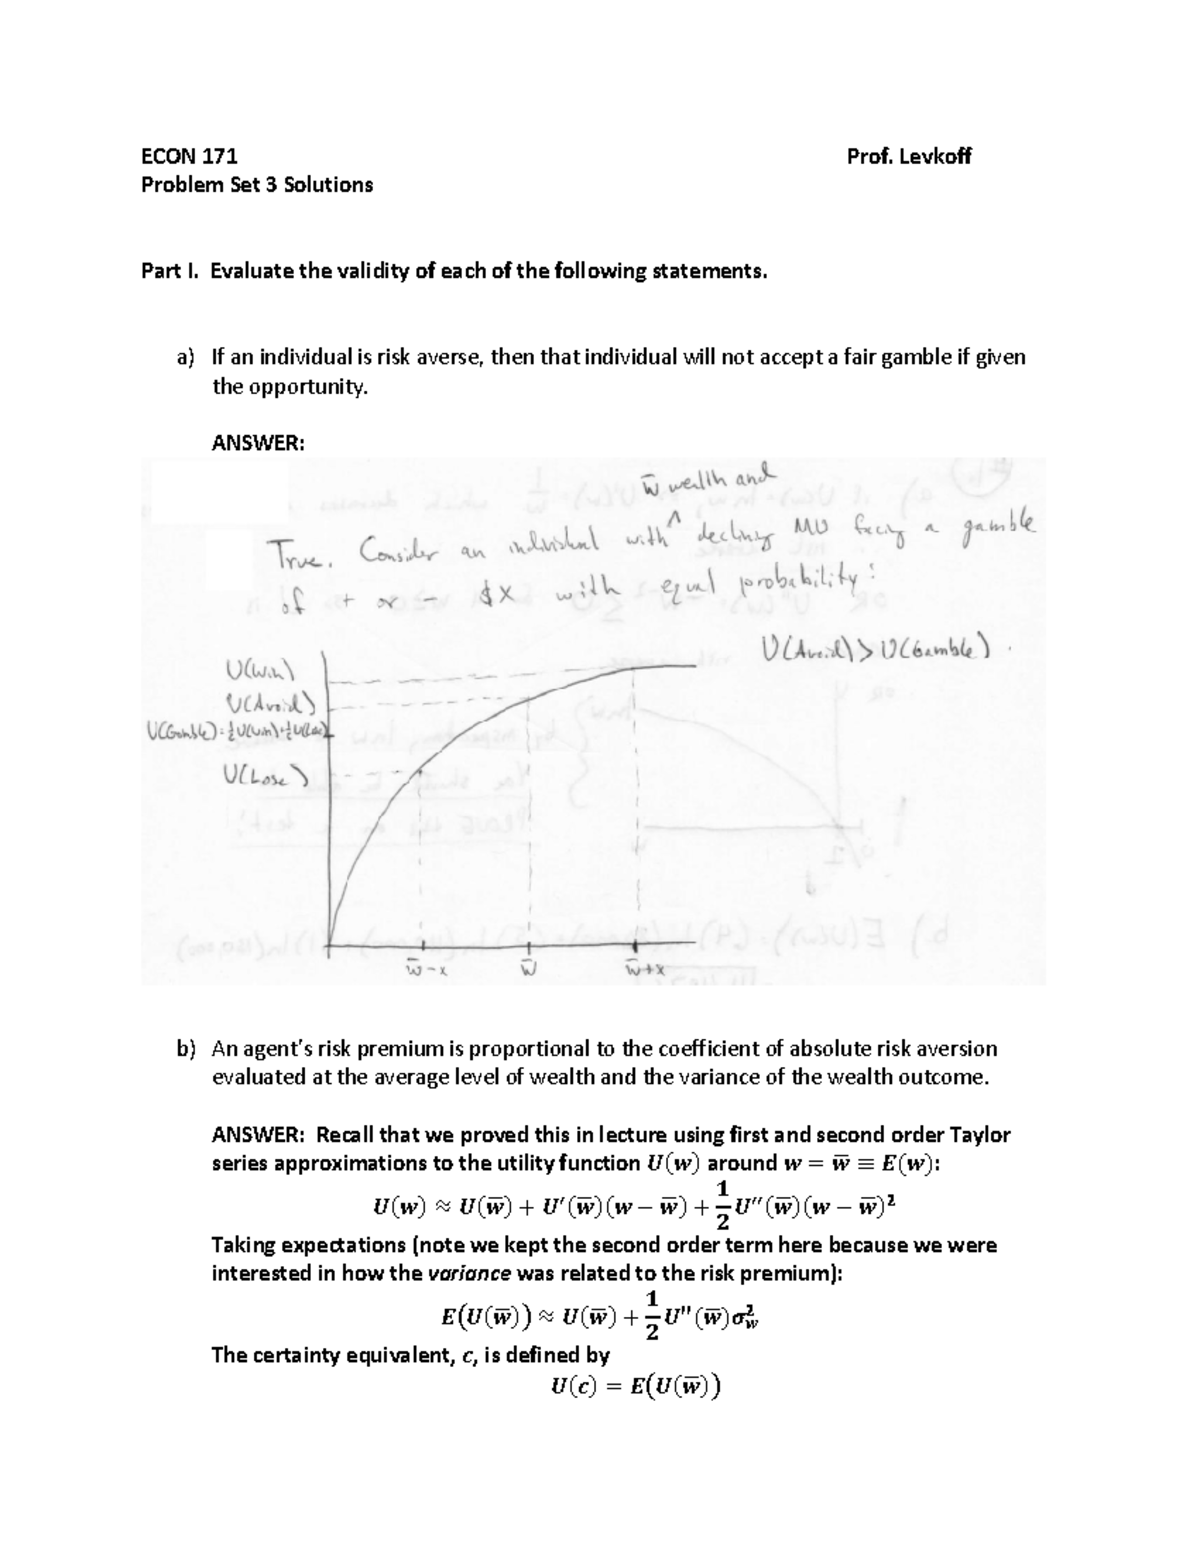 ECON 171 Prof. Levkoff
Problem Set 3 Solutions
Part I. Evaluate the validity of each of the following statements.
a) If an individual is risk averse, then that individual will not accept a fair gamble if given
the opportunity.
ANSWER:
w̅ wealth and
True. Consider an individual with ^ declining MU facing a gamble
of + or - $X with equal probability:
U(Avoid) > U(Gamble).
U(Win)
U(Avoid)
U(Gamble) = ½U(Win)+½U(Lose)
U(Lose)
w̅-x w̅ w̅+x
b) An agent's risk premium is proportional to the coefficient of absolute risk aversion
evaluated at the average level of wealth and the variance of the wealth outcome.
ANSWER: Recall that we proved this in lecture using first and second order Taylor
series approximations to the utility function U(w) around w = w̅ ≡ E(w):
U(w) ≈ U(w̅) + U′(w̅)(w − w̅) + 1/2 U′′(w̅)(w − w̅)²
Taking expectations (note we kept the second order term here because we were
interested in how the variance was related to the risk premium):
E(U(w̅)) ≈ U(w̅) + 1/2 U''(w̅)σ²_w
The certainty equivalent, c, is defined by
U(c) = E(U(w̅))